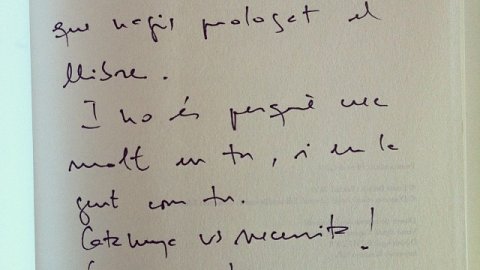 que hagis prologat el
llibre.
I ho és perquè crec
molt en tu, i en la
gent com tu.
Catalunya us necessita!